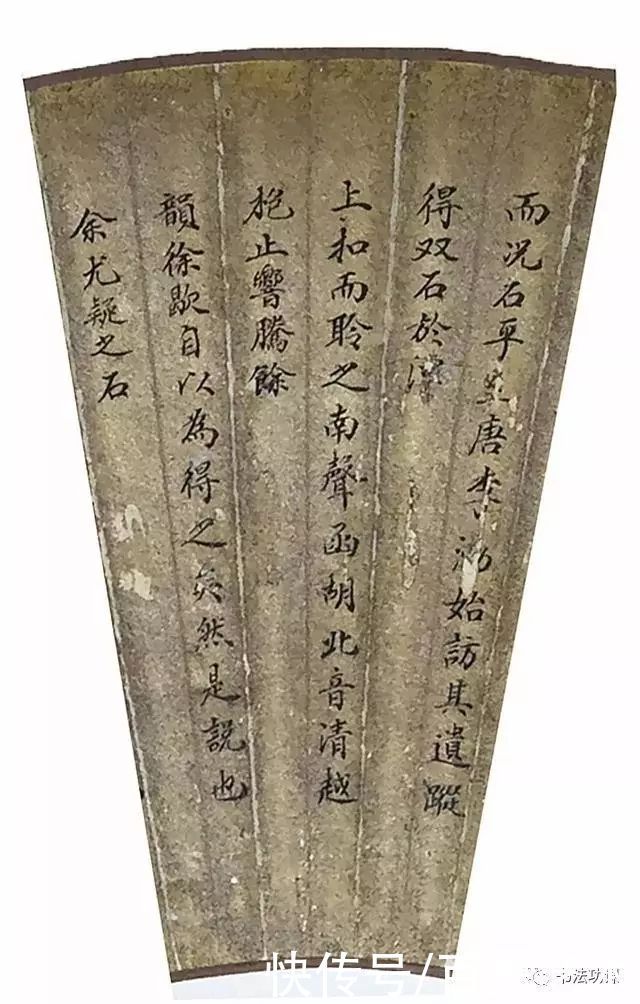 而况石乎至唐李渤始訪其遺蹤
得双石於潭
上扣而聆之南聲函胡北音清越
枹止響騰餘
韻徐歇自以為得之矣然是説也
余尤疑之石
快传号/
书法功课